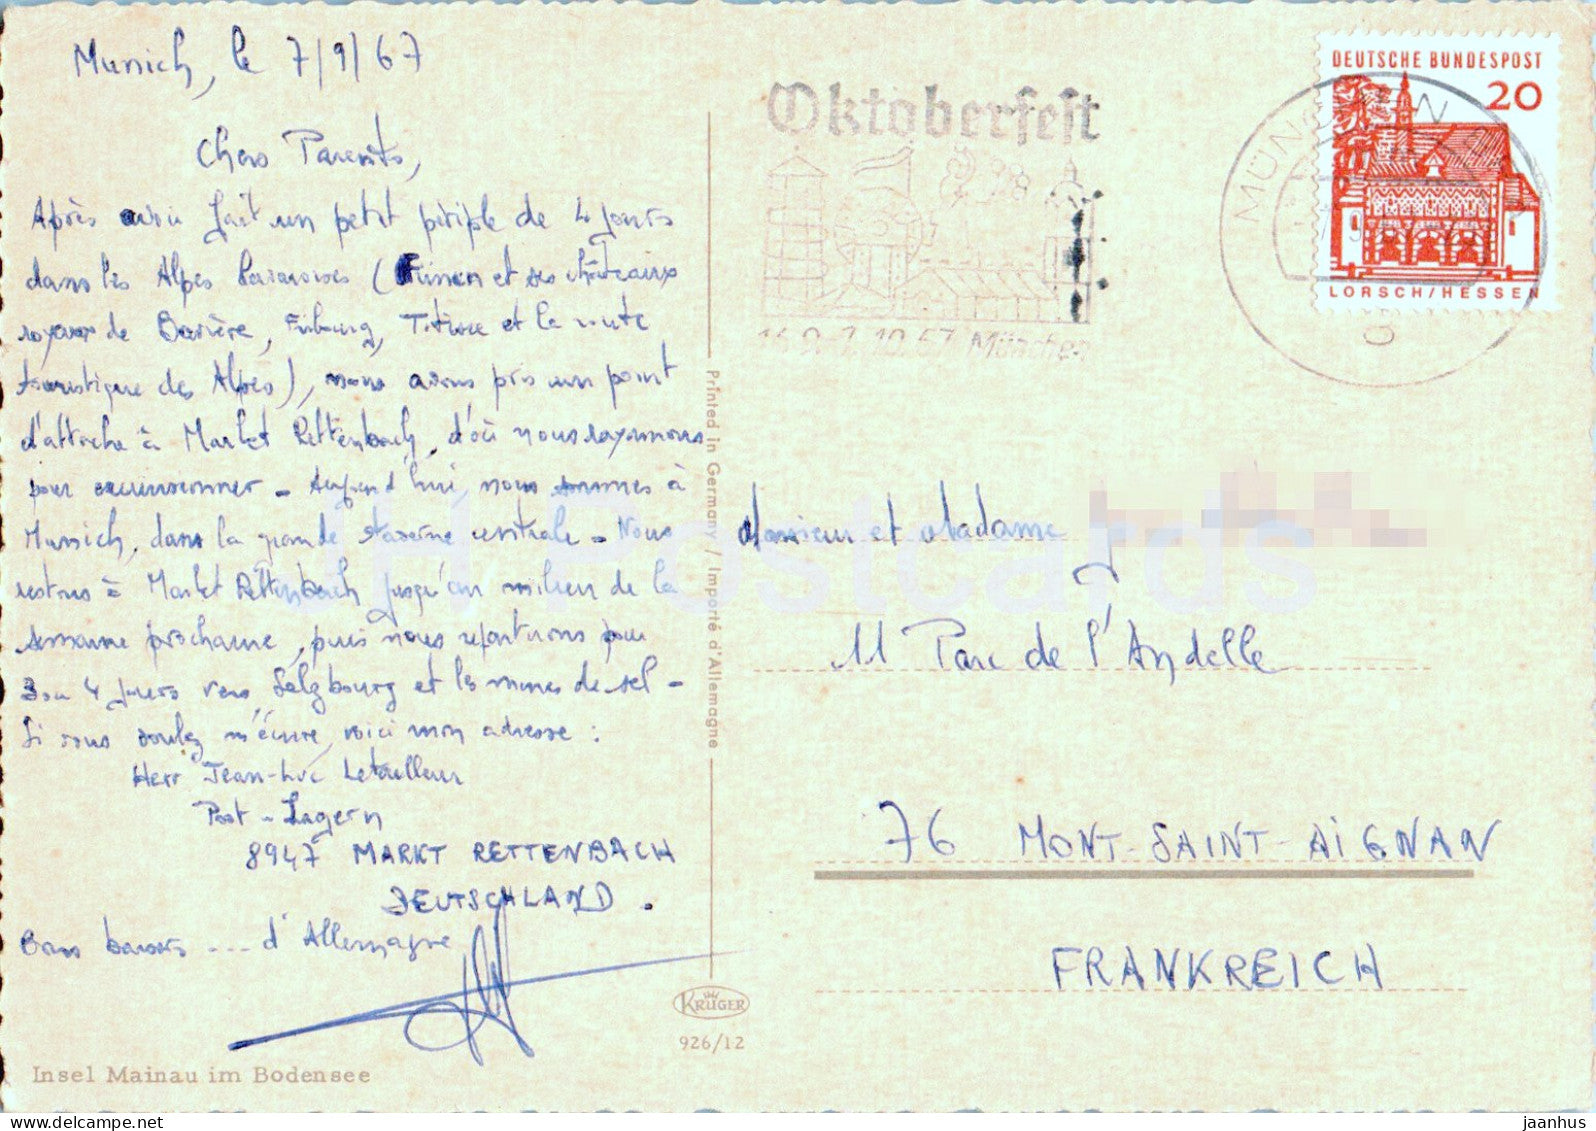 Munich, le 7/9/67
Chers Parents,
Après avoir fait un petit périple de 4 jours
dans les Alpes bavaroises ( et ses châteaux
royaux de Bavière, Fribourg, Titisee et la route
touristique des Alpes), nous avons pris un point
d'attache à Markt Rettenbach, d'où nous rayonnons
pour excursionner - Aujourd'hui, nous sommes à
Munich, dans la grande taverne centrale - Nous
restons à Markt Rettenbach jusqu'au milieu de la
semaine prochaine, puis nous repartirons pour
3 ou 4 jours vers Salzbourg et les mines de sel -
Si vous voulez m'écrire, voici mon adresse :
Herr Jean-Luc Letailleur
Post - Lagern
8947 MARKT RETTENBACH
DEUTSCHLAND.
Bons baisers ... d'Allemagne
Insel Mainau im Bodensee
Printed in Germany / Importé d'Allemagne
KRÜGER
926/12
Oktoberfest
16.9.-1.10.67 München
MÜNCHEN
DEUTSCHE BUNDESPOST
20
LORSCH/HESSEN
Monsieur et Madame
11 Parc de l'Andelle
76 MONT-SAINT-AIGNAN
FRANKREICH
JH Postcards
www.delcampe.net
jaanhus